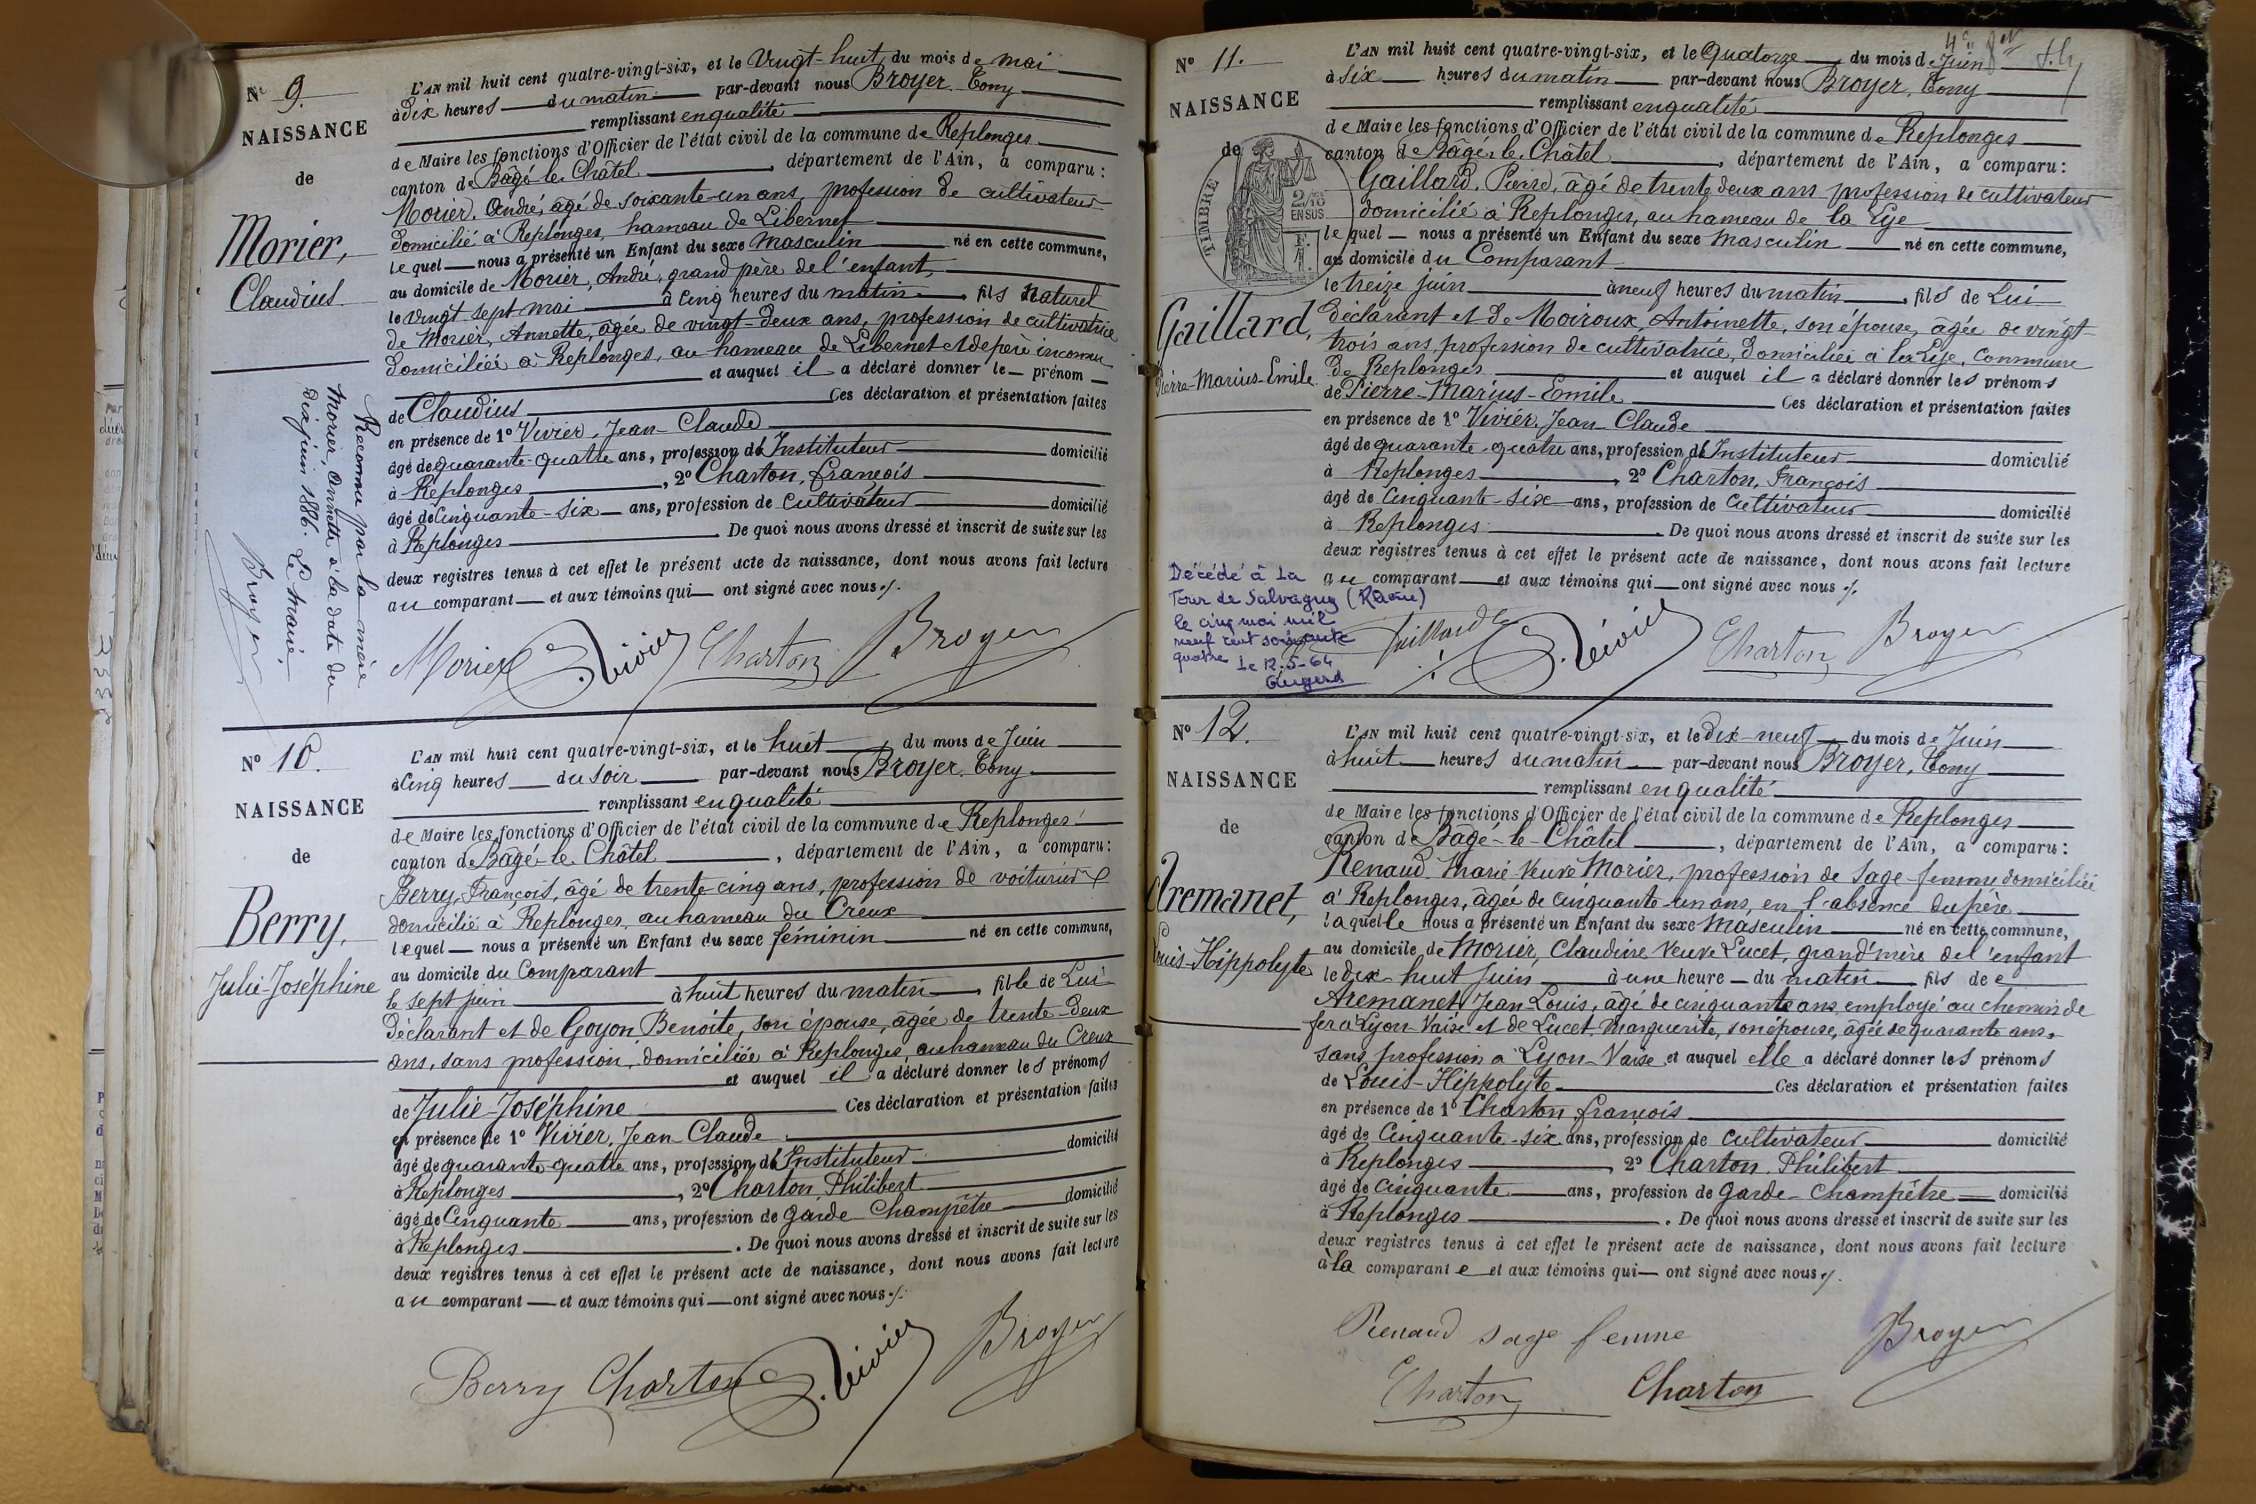 N° 9.
NAISSANCE
de
Morier,
Claudius
L'AN mil huit cent quatre-vingt-six, et le Vingt-huit du mois de mai
à dix heures du matin par-devant nous Broyer, Tony
remplissant en qualité
de Maire les fonctions d'Officier de l'état civil de la commune de Replonges
canton de Bâgé-le-Châtel, département de l'Ain, a comparu:
Morier, André, âgé de soixante-un ans, profession de cultivateur
domicilié à Replonges, hameau de Libernet
lequel nous a présenté un Enfant du sexe masculin né en cette commune,
au domicile de Morier, André, grand père de l'enfant,
le vingt-sept mai à cinq heures du matin, fils naturel
de Morier, Annette, âgée de vingt-deux ans, profession de cultivatrice
domiciliée à Replonges, au hameau de Libernet et de père inconnu
et auquel il a déclaré donner le prénom
de Claudius Ces déclaration et présentation faites
en présence de 1° Vivier, Jean-Claude
âgé de quarante-quatre ans, profession d'Instituteur domicilié
à Replonges, 2° Charton, François
âgé de Cinquante-six ans, profession de cultivateur domicilié
à Replonges De quoi nous avons dressé et inscrit de suite sur les
deux registres tenus à cet effet le présent acte de naissance, dont nous avons fait lecture
au comparant et aux témoins qui ont signé avec nous ./.
Reconnu par la mère
Morier, Annette, à la date du
dix juin 1886. Le maire,
Broyer
Morier J. Vivier Charton Broyer
N° 10.
NAISSANCE
de
Berry,
Julie-Joséphine
L'AN mil huit cent quatre-vingt-six, et le huit du mois de Juin
à Cinq heures du soir par-devant nous Broyer, Tony
remplissant en qualité
de Maire les fonctions d'Officier de l'état civil de la commune de Replonges
canton de Bâgé-le-Châtel, département de l'Ain, a comparu:
Berry, François, âgé de trente-cinq ans, profession de voiturier
domicilié à Replonges, au hameau du Creux
lequel nous a présenté un Enfant du sexe féminin né en cette commune,
au domicile du Comparant
le sept juin à huit heures du matin, fille de Lui
Déclarant et de Goyon Benoite, son épouse, âgée de trente-deux
ans, sans profession, domiciliée à Replonges, au hameau du Creux
et auquel il a déclaré donner les prénoms
de Julie-Joséphine Ces déclaration et présentation faites
en présence de 1° Vivier, Jean-Claude
âgé de quarante-quatre ans, profession d'Instituteur domicilié
à Replonges, 2° Charton, Philibert
âgé de Cinquante ans, profession de garde-Champêtre domicilié
à Replonges. De quoi nous avons dressé et inscrit de suite sur les
deux registres tenus à cet effet le présent acte de naissance, dont nous avons fait lecture
au comparant et aux témoins qui ont signé avec nous ./.
Berry Charton J. Vivier Broyer
N° 11.
NAISSANCE
de
TIMBRE
2/10
EN SUS
Gaillard,
Pierre-Marius-Emile
L'AN mil huit cent quatre-vingt-six, et le Quatorze du mois de Juin
à six heures du matin par-devant nous Broyer, Tony
remplissant en qualité
de Maire les fonctions d'Officier de l'état civil de la commune de Replonges
canton de Bâgé-le-Châtel, département de l'Ain, a comparu:
Gaillard, Pierre, âgé de trente-deux ans profession de cultivateur
domicilié à Replonges, au hameau de la Lye
lequel nous a présenté un Enfant du sexe masculin né en cette commune,
au domicile du Comparant
le treize juin à neuf heures du matin, fils de Lui
Déclarant et de Moiroux, Antoinette, son épouse, âgée de vingt-
trois ans, profession de cultivatrice, domiciliée à la Lye, Commune
de Replonges et auquel il a déclaré donner les prénoms
de Pierre-Marius-Emile Ces déclaration et présentation faites
en présence de 1° Vivier, Jean-Claude
âgé de quarante-quatre ans, profession d'Instituteur domicilié
à Replonges, 2° Charton, François
âgé de Cinquante-six ans, profession de Cultivateur domicilié
à Replonges. De quoi nous avons dressé et inscrit de suite sur les
deux registres tenus à cet effet le présent acte de naissance, dont nous avons fait lecture
au comparant et aux témoins qui ont signé avec nous ./.
Décédé à La
Tour de Salvagny (Rhône)
le cinq mai mil
neuf cent soixante
quatre Le 12-5-64
Gaillard J. Vivier Charton Broyer
N° 12.
NAISSANCE
de
Aremanet,
Louis-Hippolyte
L'AN mil huit cent quatre-vingt-six, et le dix-neuf du mois de Juin
à huit heures du matin par-devant nous Broyer, Tony
remplissant en qualité
de Maire les fonctions d'Officier de l'état civil de la commune de Replonges
canton de Bâgé-le-Châtel, département de l'Ain, a comparu:
Renaud, Marie Veuve Morier, profession de Sage-femme domiciliée
à Replonges, âgée de cinquante-un ans, en l'absence du père
laquelle nous a présenté un Enfant du sexe Masculin né en cette commune,
au domicile de Morier, Claudine Veuve Lucet, grand'mère de l'enfant
le dix-huit juin à une heure du matin fils de
Aremanet, Jean Louis, âgé de cinquante ans employé au chemin de
fer à Lyon-Vaise et de Lucet, Marguerite, son épouse, âgée de quarante ans,
sans profession à Lyon-Vaise et auquel elle a déclaré donner les prénoms
de Louis-Hippolyte Ces déclaration et présentation faites
en présence de 1° Charton, François
âgé de Cinquante-six ans, profession de cultivateur domicilié
à Replonges, 2° Charton, Philibert
âgé de Cinquante ans, profession de garde-Champêtre domicilié
à Replonges. De quoi nous avons dressé et inscrit de suite sur les
deux registres tenus à cet effet le présent acte de naissance, dont nous avons fait lecture
à la comparante et aux témoins qui ont signé avec nous ./.
Renaud sage femme Broyer
Charton Charton